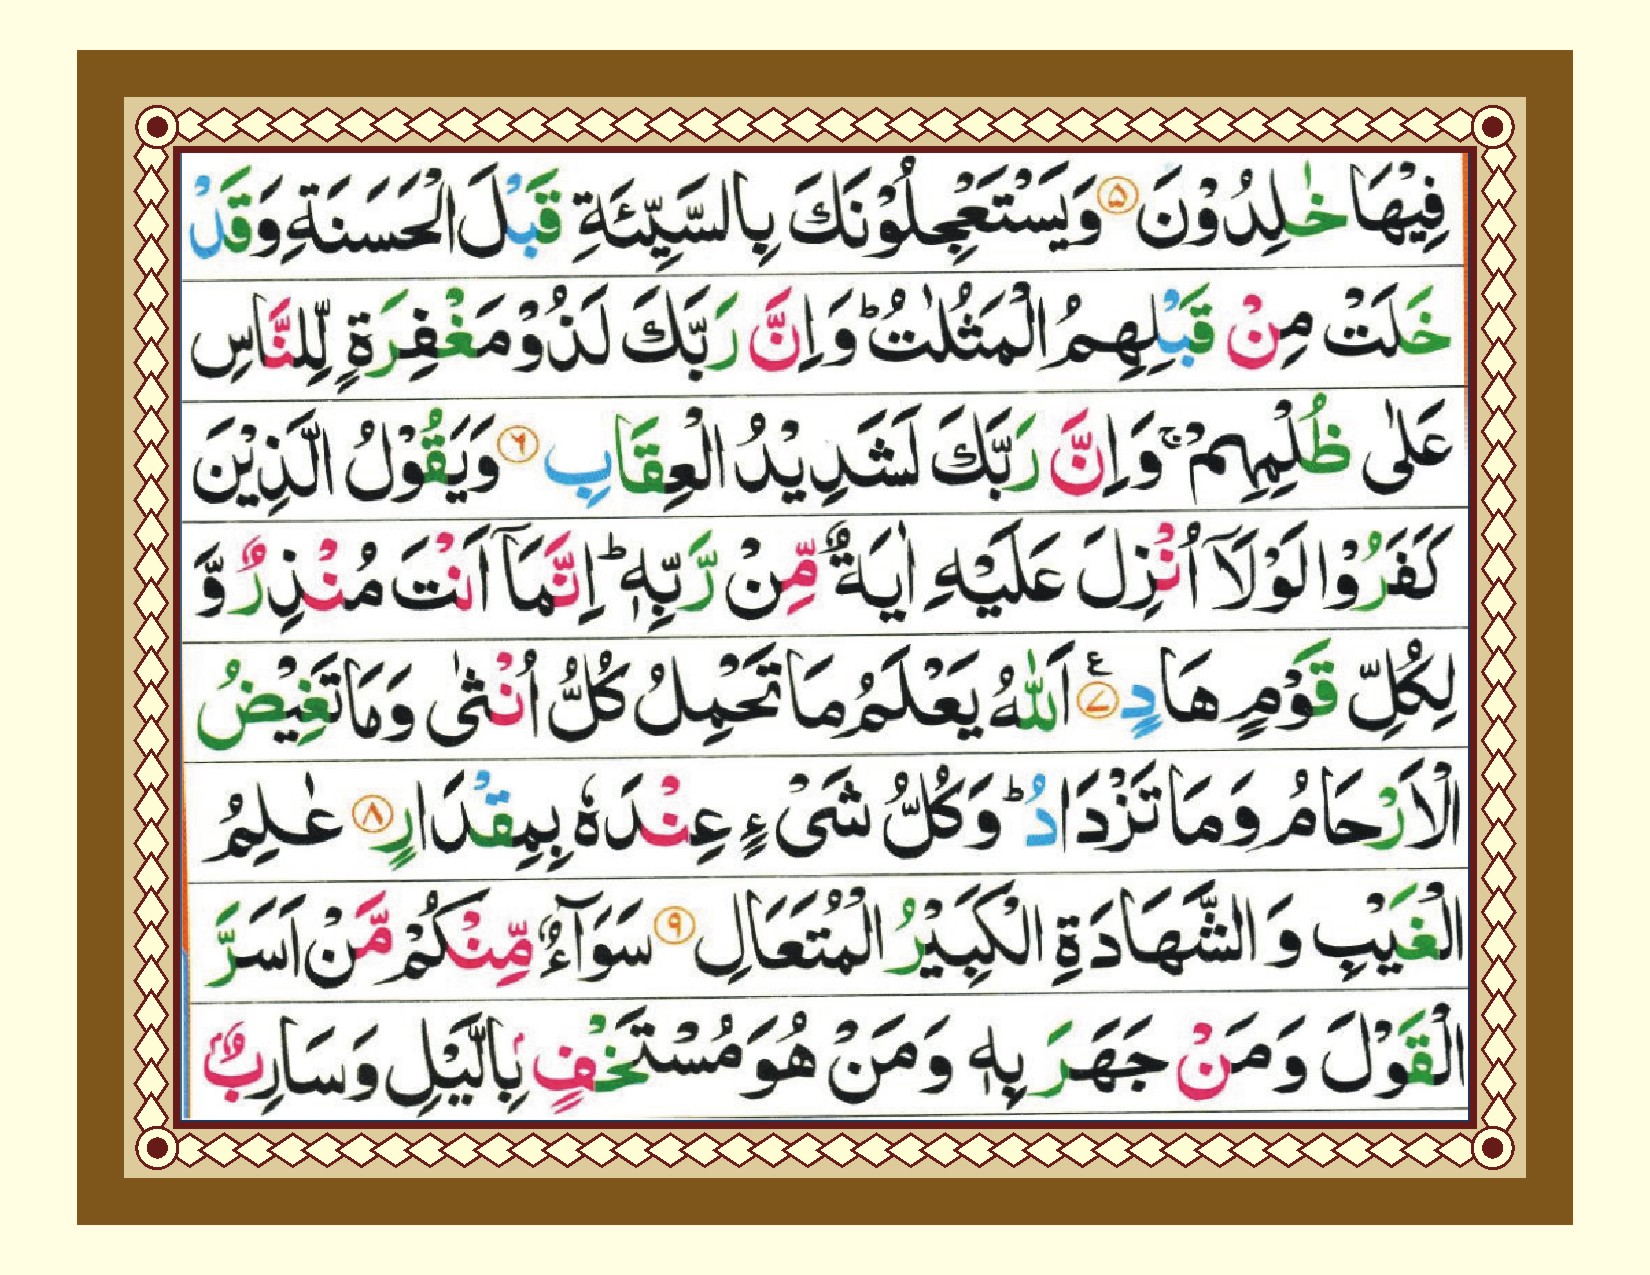 فِيْهَا خٰلِدُوْنَ ۝۵ وَيَسْتَعْجِلُوْنَكَ بِالسَّيِّئَةِ قَبْلَ الْحَسَنَةِ وَقَدْ
خَلَتْ مِنْ قَبْلِهِمُ الْمَثُلٰتُ ؕ وَاِنَّ رَبَّكَ لَذُوْ مَغْفِرَةٍ لِّلنَّاسِ
عَلٰى ظُلْمِهِمْ ۚ وَاِنَّ رَبَّكَ لَشَدِيْدُ الْعِقَابِ ۝۶ وَيَقُوْلُ الَّذِيْنَ
كَفَرُوْا لَوْلَاۤ اُنْزِلَ عَلَيْهِ اٰيَةٌ مِّنْ رَّبِّهٖ ؕ اِنَّمَاۤ اَنْتَ مُنْذِرٌ وَّ
لِكُلِّ قَوْمٍ هَادٍ ۝۷ ع اَللّٰهُ يَعْلَمُ مَا تَحْمِلُ كُلُّ اُنْثٰى وَمَا تَغِيْضُ
الْاَرْحَامُ وَمَا تَزْدَادُ ؕ وَكُلُّ شَىْءٍ عِنْدَهٗ بِمِقْدَارٍ ۝۸ عٰلِمُ
الْغَيْبِ وَ الشَّهَادَةِ الْكَبِيْرُ الْمُتَعَالِ ۝۹ سَوَآءٌ مِّنْكُمْ مَّنْ اَسَرَّ
الْقَوْلَ وَمَنْ جَهَرَ بِهٖ وَمَنْ هُوَ مُسْتَخْفٍۭ بِالَّيْلِ وَسَارِبٌۢ